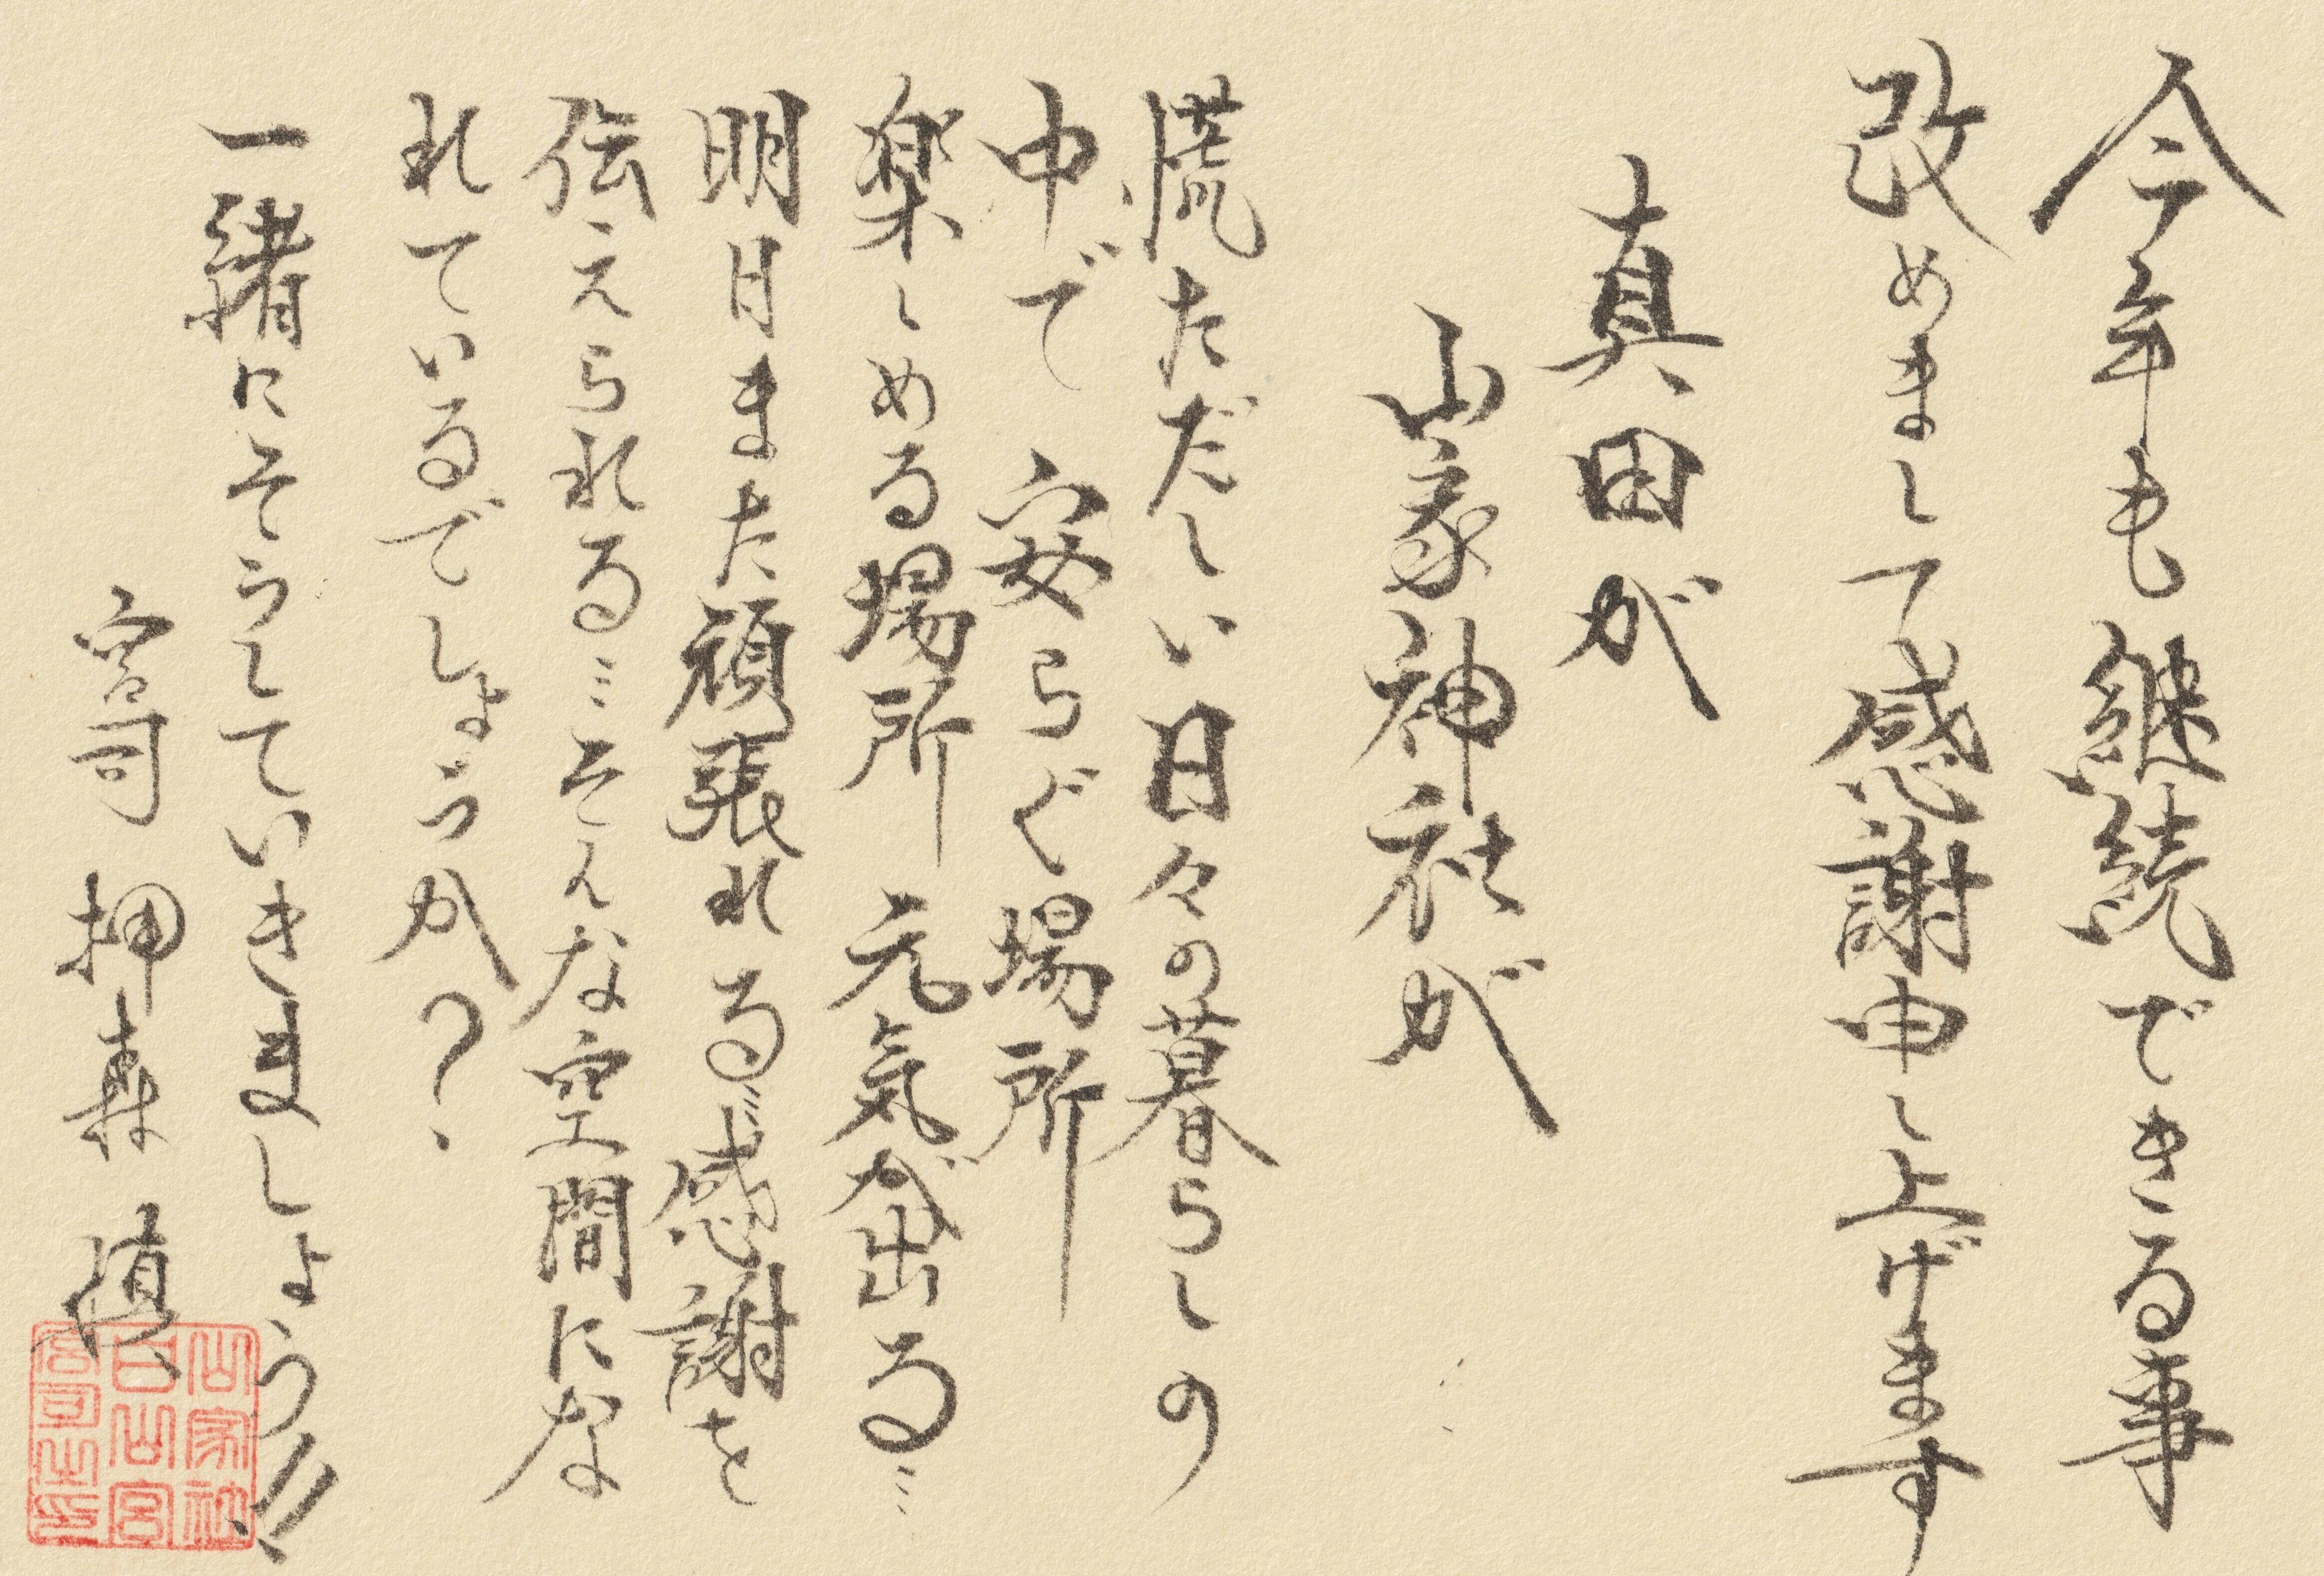 今年も継続できる事
改めまして感謝申し上げます
真田が
山家神社が
慌ただしい日々の暮らしの
中で 安らぐ場所
楽しめる場所 元気が出る…
明日また頑張れる…感謝を
伝えられる…そんな空間にな
れているでしょうか？
一緒にそうしていきましょう!!
宮司 押森 慎
山家社
白山宮
宮司之印